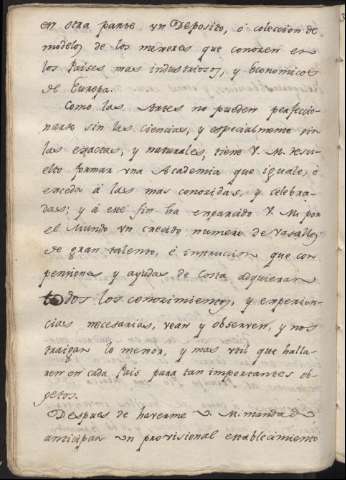 en otra parte un Deposito, ó coleccion de
modelos de los mexores que conocen en
los Paises mas industriosos, y Economicos
de Europa.
Como las Artes no pueden perfeccio-
narse sin las ciencias, y especialmente sin
las exactas, y naturales, tiene V. M. resu-
elto formar una Academia que iguale, ó
exceda á las mas conocidas, y celebra-
das; y á ese fin ha enparado V. M. por
el Mundo un crecido numero de vasallos
de gran talento, é instruccion que con
penciones y ayudas de Costa adquieran
todos los conocimientos, y experien-
cias necesarias, vean y observen, y nos
traigan lo menor, y mas util que halla-
ren en cada Pais para tan importantes ob-
getos.
Despues de haverme V. M. mandado
anticipar un provisional establecimiento